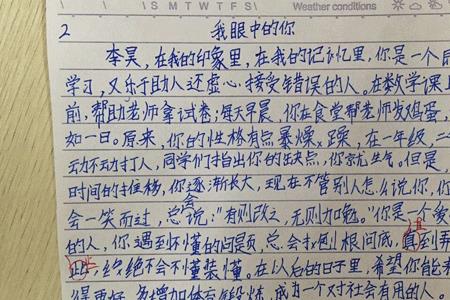 S M T W T F S Weather conditions
2 我眼中的你
李昊，在我的印象里，在我的记忆里，你是一个
学习，又乐于助人还虚心接受错误的人。在数学课
前，帮助老师拿试卷；每天早晨，你在食堂帮老师发鸡蛋，
如一日。原来，你的性格有点暴燥，躁，在一年级，二
动不动打人，同学们指出你的缺点，你就生气。但是，
时间的推移，你逐渐长大，现在不管别人怎么说你，你
会一笑而过，总会说：“有则改之，无则加勉。”你是一个爱
的人，你遇到不懂的问题，总会打刨根问底，直到弄
，终绝不会不懂装懂。在以后的日子里，希望你能
得更好，多增加体育锻炼，成为一个对社会有用的人